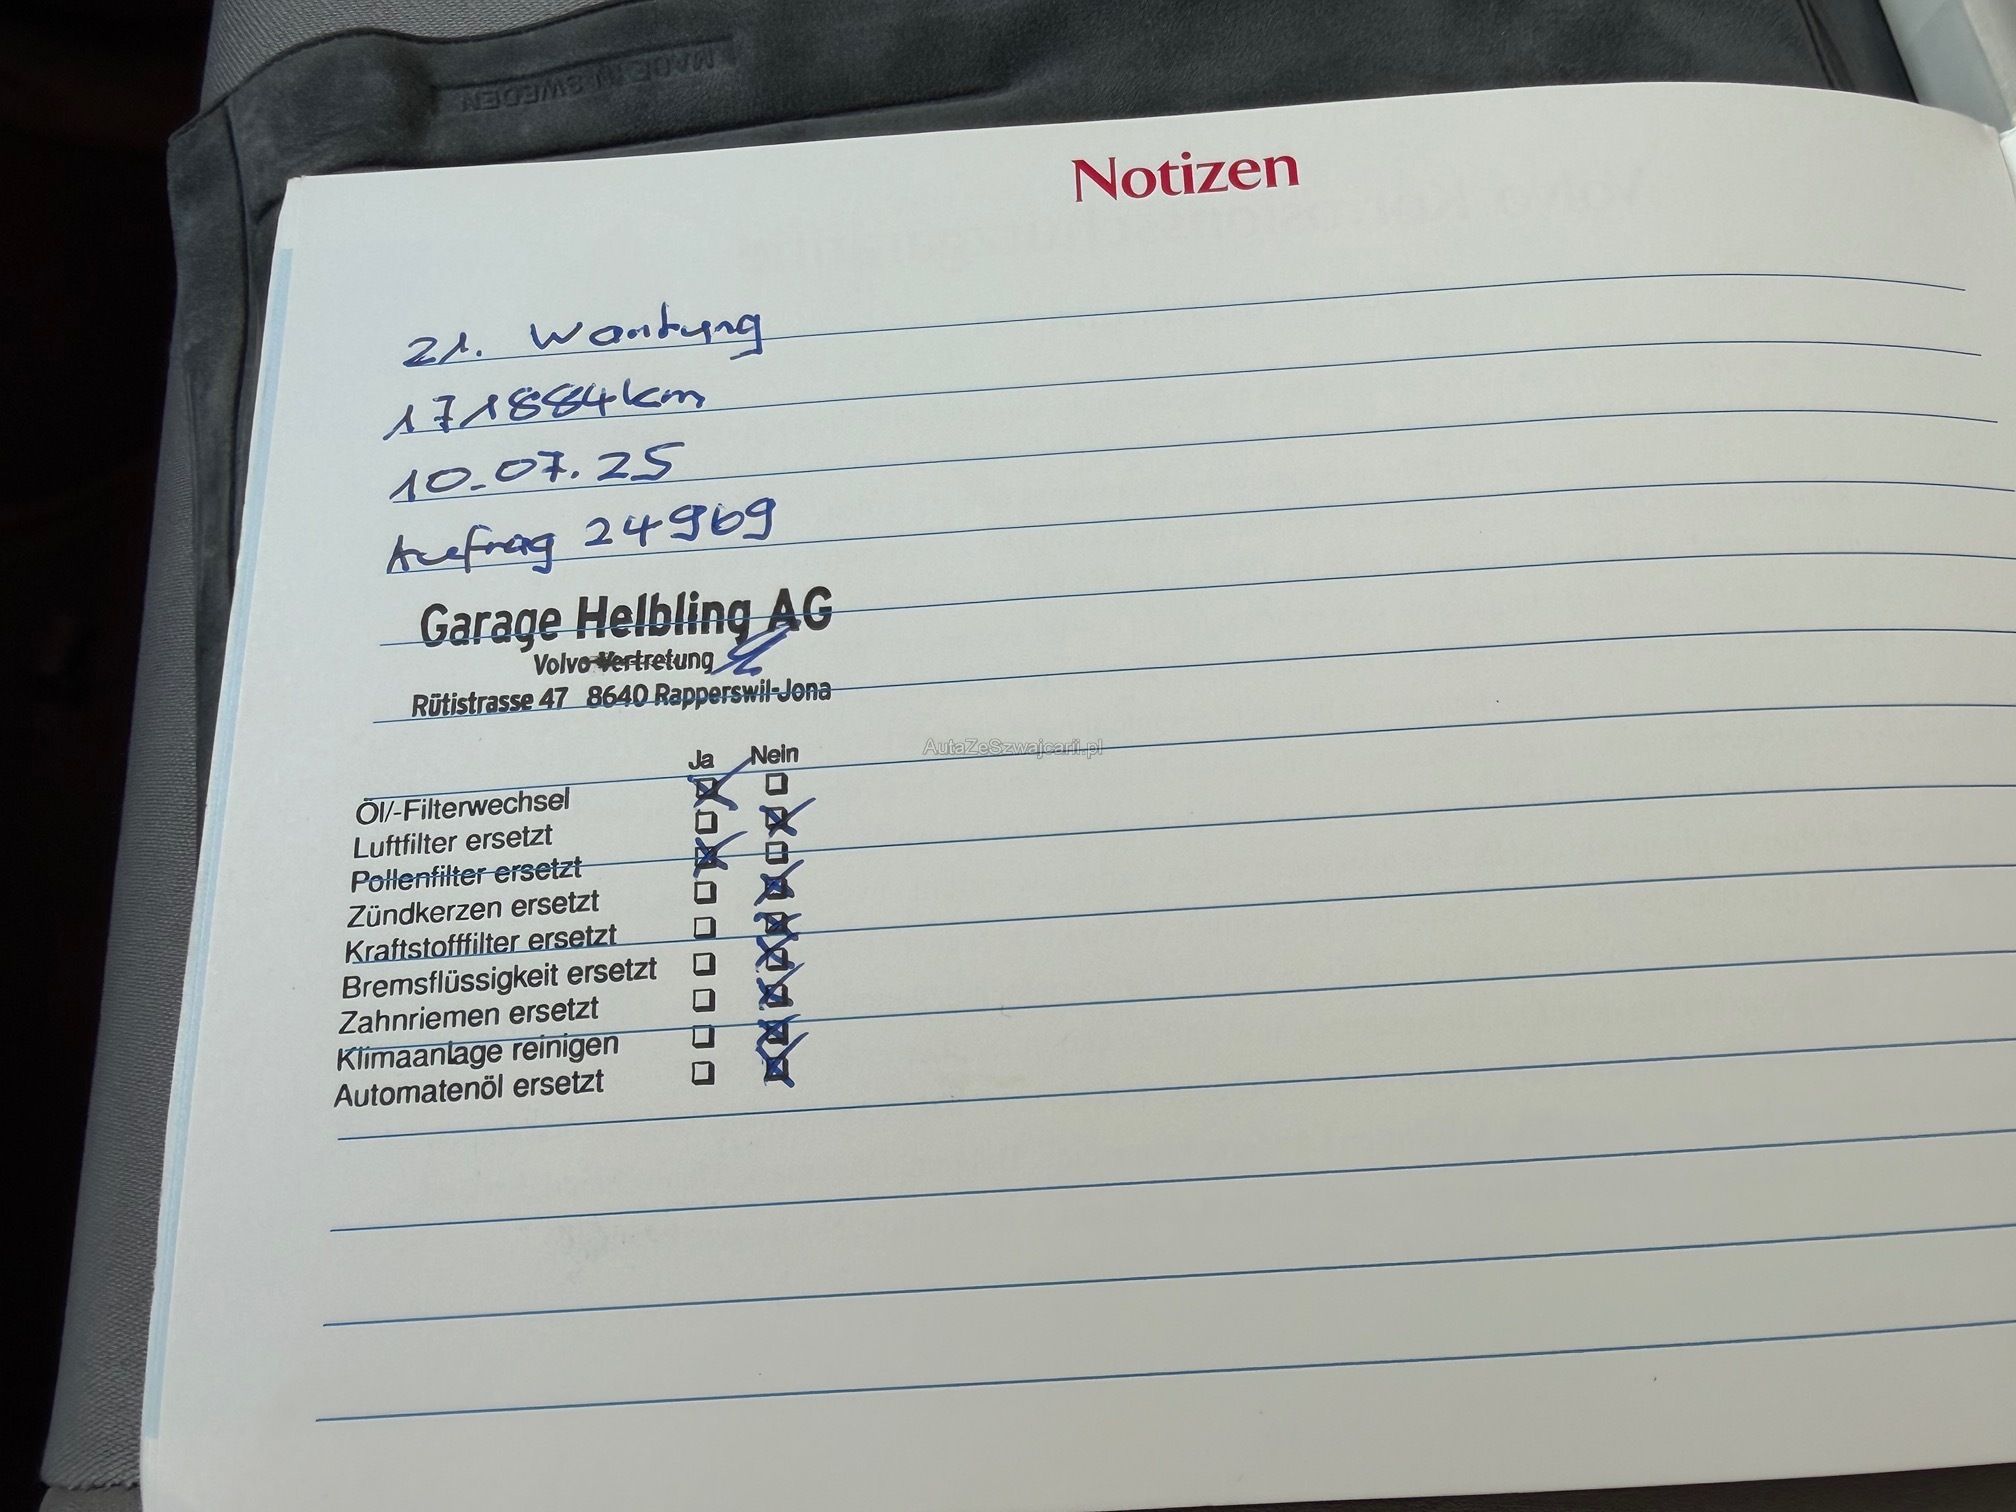 MADE IN SWEDEN
Notizen
21. Wartung
171884km
10.07.25
Auftrag 24969
Garage Helbling AG
Volvo-Vertretung
Rütistrasse 47 8640 Rapperswil-Jona
Ja Nein
Öl/-Filterwechsel
Luftfilter ersetzt
Pollenfilter ersetzt
Zündkerzen ersetzt
Kraftstofffilter ersetzt
Bremsflüssigkeit ersetzt
Zahnriemen ersetzt
Klimaanlage reinigen
Automatenöl ersetzt
AutaZeSzwajcarii.pl